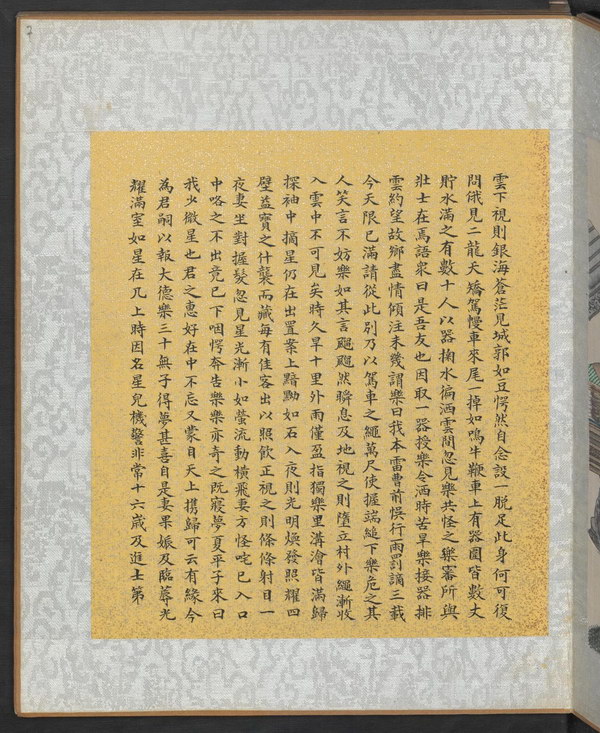 7
雲下視則銀海蒼茫見城郭如豆愕然自念設一脱足此身何可復
問俄見二龍夭矯駕幔車來尾一掉如鳴牛鞭車上有器圍皆數丈
貯水滿之有數十人以器掬水徧洒雲間忽見樂共怪之樂審所與
壯士在焉語衆曰是吾友也因取一器授樂令洒時苦旱樂接器排
雲約望故鄉盡情傾注未幾謂樂曰我本雷曹前悮行雨罰謫三載
今天限已滿請從此別乃以駕車之繩萬尺使握端縋下樂危之其
人笑言不妨樂如其言飀飀然瞬息及地視之則墮立村外繩漸收
入雲中不可見矣時久旱十里外雨僅盈指獨樂里溝澮皆滿歸
探袖中摘星仍在出置案上黯黝如石入夜則光明煥發照耀四
壁益寶之什襲而藏每有佳客出以照飲正視之則條條射目一
夜妻坐對握髮忽見星光漸小如螢流動橫飛妻方怪咤已入口
中咯之不出竟已下咽愕奔告樂樂亦奇之既寢夢夏平子來曰
我少微星也君之惠好在中不忘又蒙自天上携歸可云有緣今
為君嗣以報大德樂三十無子得夢甚喜自是妻果娠及臨蓐光
耀滿室如星在几上時因名星兒機警非常十六歲及進士第